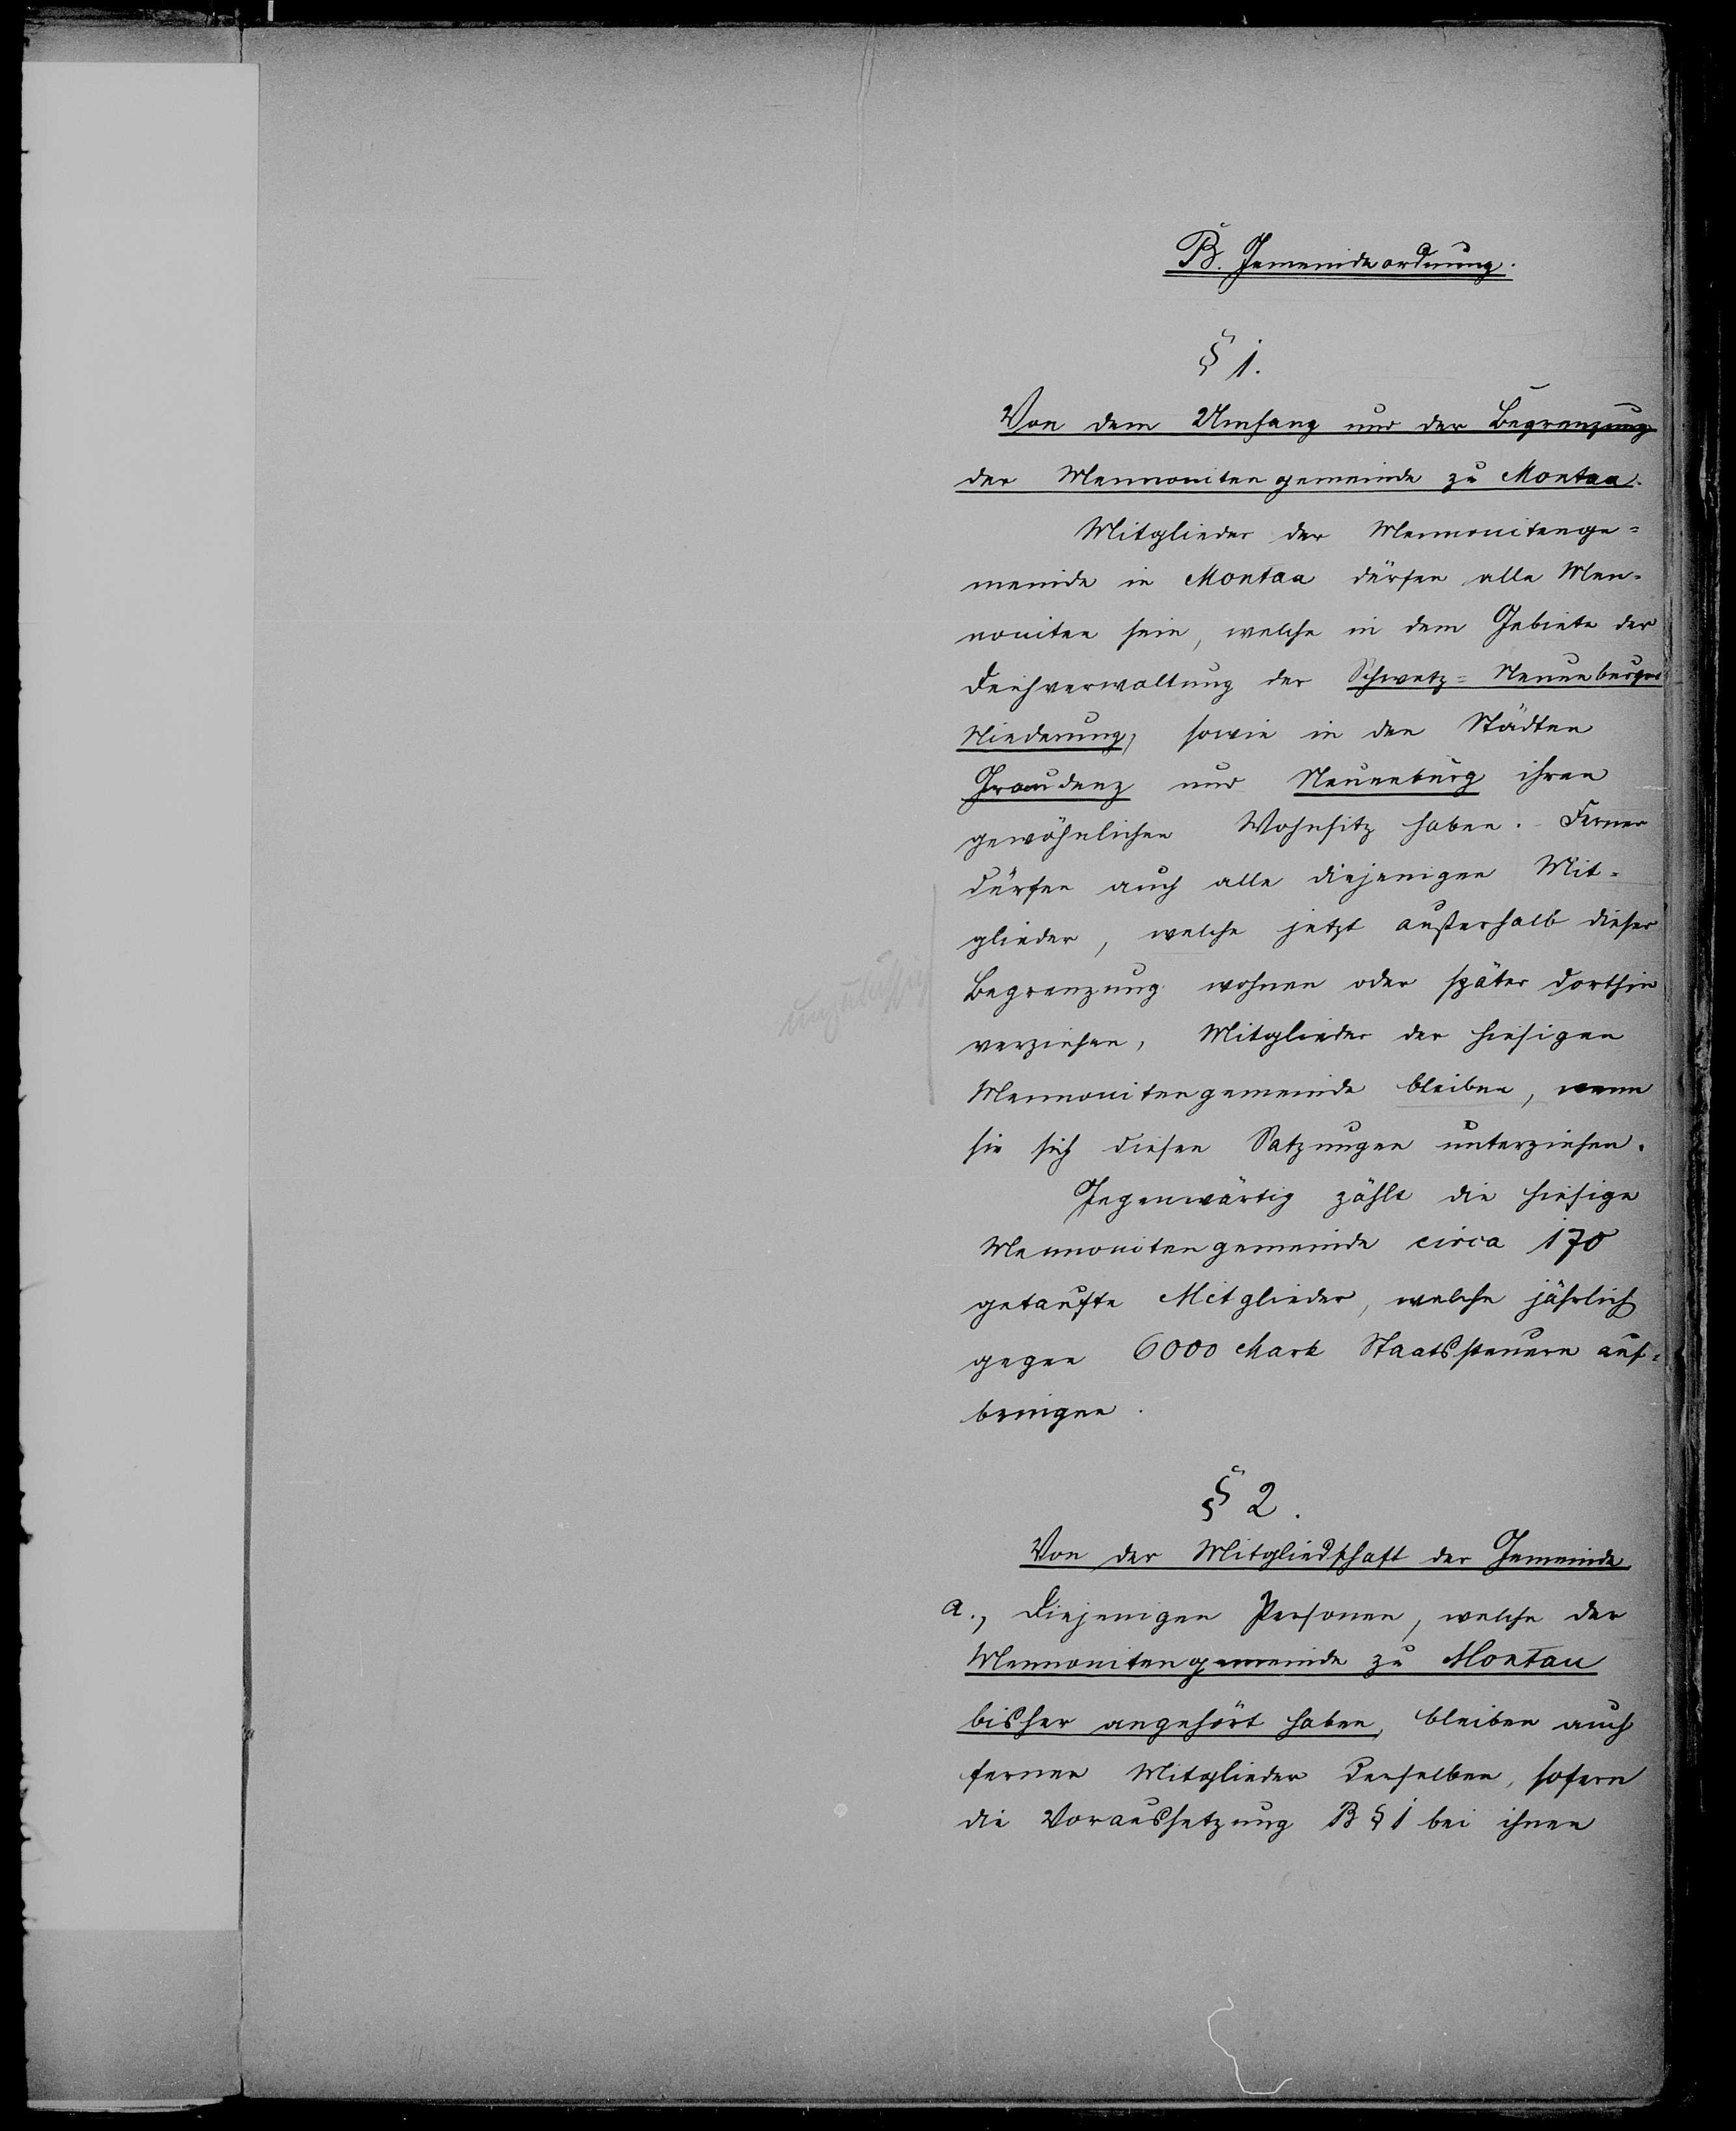 B. Gemeindeordnung.
§ 1.
Von dem Umfang und der Begrenzung
der Mennonitengemeinde zu Montau.
Mitglieder der Mennonitenge=
meinde in Montau dürfen alle Men=
noniten sein, welche in dem Gebiete der
Deichverwaltung der Schwetz=Neuenburger
Niederung, sowie in den Städten
Graudenz und Neuenburg ihren
gewöhnlichen Wohnsitz haben. Ferner
dürfen auch alle diejenigen Mit=
glieder, welche jetzt außerhalb dieser
Begrenzung wohnen oder später dorthin
verziehen, Mitglieder der hiesigen
Mennonitengemeinde bleiben, wenn
sie sich diesen Satzungen unterziehen.
unzulässig
Gegenwärtig zählt die hiesige
Mennonitengemeinde circa 170
getaufte Mitglieder, welche jährlich
gegen 6000 Mark Staatssteuern auf=
bringen.
§ 2.
Von der Mitgliedschaft der Gemeinde
a., Diejenigen Personen, welche der
Mennonitengemeinde zu Montau
bisher angehört haben, bleiben auch
ferner Mitglieder derselben, sofern
die Voraussetzung B § 1 bei ihnen